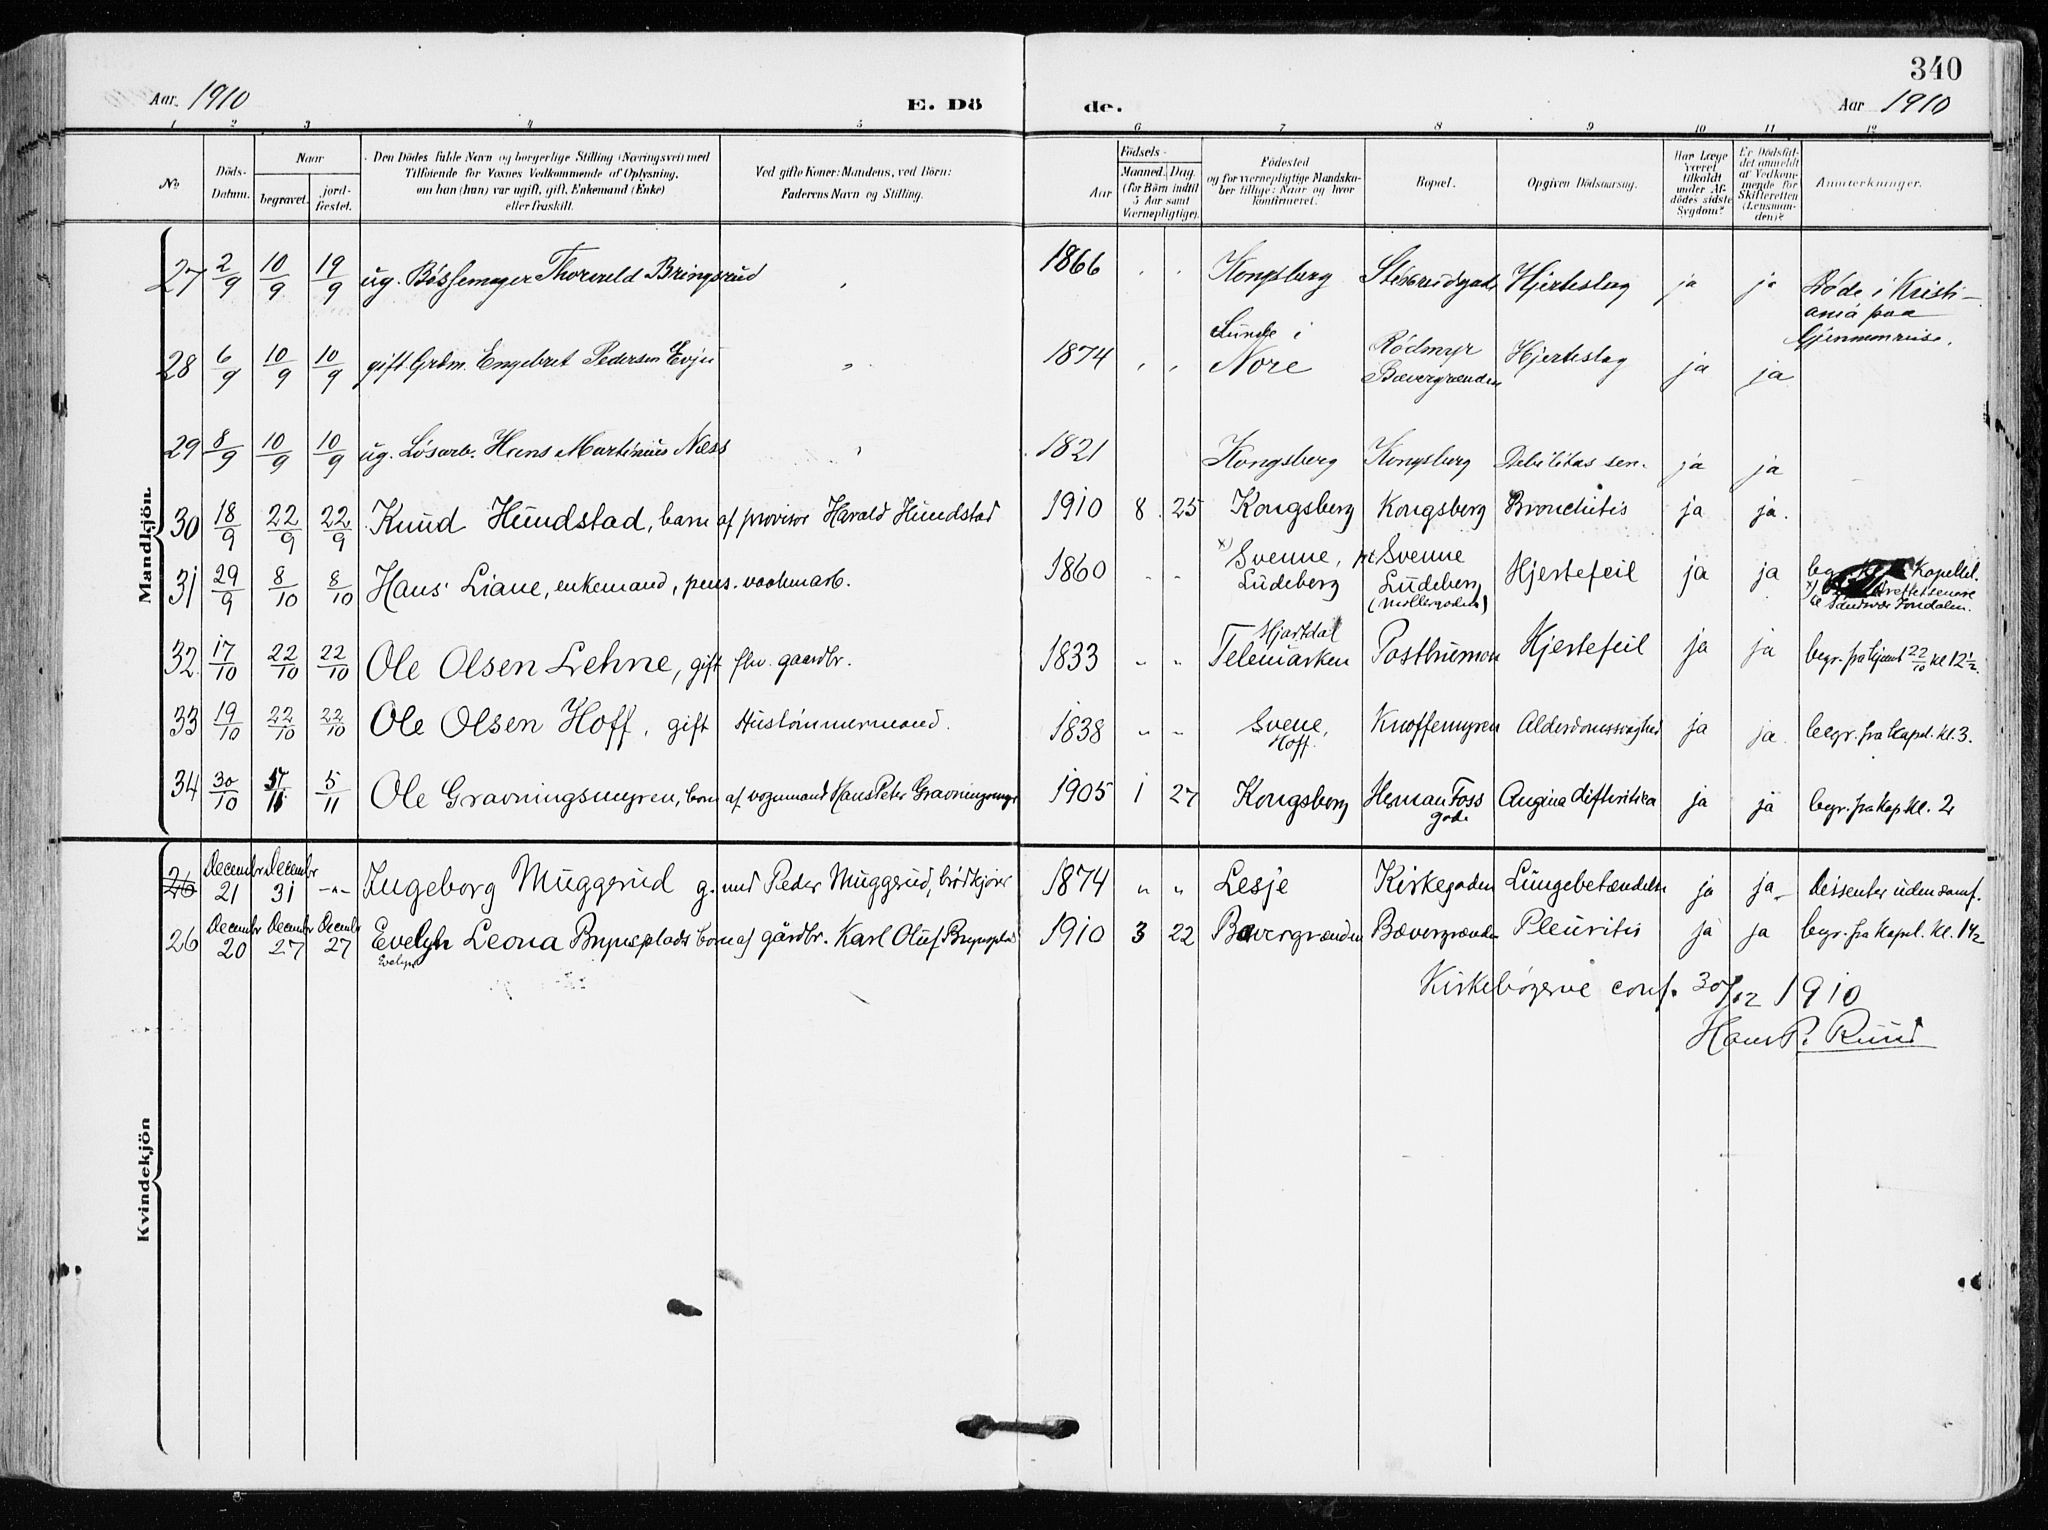 340
Aar 1910 E. Dö de. Aar 1910
1 2 3 4 5 6 7 8 9 10 11 12
No. Döds-Datum. Naar begravet. jord-fæstet. Den Dödes fulde Navn og borgerlige Stilling (Næringsvei) med Tilföiende for Voxnes Vedkommende af Oplysning, om han (hun) var ugift, gift, Enkemand (Enke) eller fraskilt. Ved gifte Koner: Mandens, ved Börn: Faderens Navn og Stilling. Födsels- Aar Maaned. Dag. (for Börn indtil 5 Aar samt Værnepligtige). Födested og for værnepligtige Mandskaber tillige: Naar og hvor konfirmeret. Bopæl. Opgiven Dödsaarsag. Har Læge været tilkaldt under Afdödes sidste Sygdom? Er Dödsfaldet anmeldt af Vedkommende for Skifteretten (Lensmanden)? Anmærkninger.
Mandkjön.
27 2/9 10/9 19/9 ug. Bøssemager Thorvald Bringsrud " 1866 " " Kongsberg Hjerteslag ja ja Døde i Kristiania paa Gjennemreise.
28 6/9 10/9 10/9 gift Grbm. Engebret Pedersen Evju " 1874 " " Lunde i Nore Rödmyr Bævergrænden Hjerteslag ja ja
29 8/9 10/9 10/9 ug. Løsarb. Hans Martinius Næss " 1821 Kongsberg Kongsberg Debilitas sen. ja ja
30 18/9 22/9 22/9 Knud Hundstad, barn af provisor Harald Hundstad 1910 8 25 Kongsberg Kongsberg Bronchitis ja ja.
31 29/9 8/10 8/10 Hans Liane, enkemand, pens. vaabenarb. 1860 " " x) Svenne, Ludeberg Svenne Ludeberg (Møllergaden) Hjertefeil ja ja begr. Kapellet. Sandsvær Jondalen.
32 17/10 22/10 22/10 Ole Olsen Lehne, gift fhv. gaardbr. 1833 " " Hjartdal Telemarken Postbruemoen Hjertefeil ja ja begr. fra hjemt 22/10 kl 12 1/2.
33 19/10 22/10 22/10 Ole Olsen Hoff, gift Hustømmermand. 1838 " " Svene, Hoff. Knoffemyren Alderdomssvaghed ja ja begr. fra kapel. kl. 3.
34 30/10 5/11 5/11 Ole Gravningsmyren, barn af vognmand Hans Peter Gravningsmyr 1905 1 27 Kongsberg Herman Foss gade Angina difteritica ja ja begr. fra kap kl. 2
Kvindekjön
26 Decembr 21 Decembr 31 -"- Ingeborg Muggerud g. med Peder Muggerud, brødkjører 1874 " " Lesje Kirkegaden Lungebetændelse ja ja Dissenter uden samf.
26 Decembr 20 Decembr 27 Decembr 27 Evelyn Leona Brynsplads barn af gårdbr. Karl Oluf Brynsplads 1910 3 22 Bævergrænden Bævergrænden Pleuritis ja ja begr. fra kapel. kl. 1 1/2
Evelyn
Kirkebøgerne conf. 30/12 1910
Hans P. Ruud